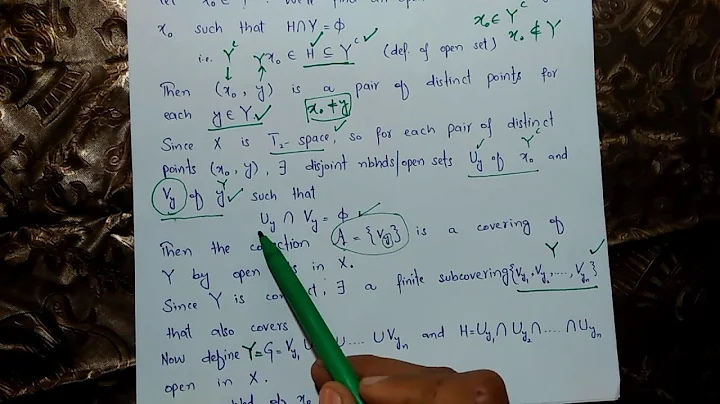 x₀ ∈ Yᶜ
x₀ such that H∩Y = ϕ x₀ ∉ Y
Yᶜ Y
i.e. x₀ ∈ H ⊆ Yᶜ (def. of open set)
Then (x₀, y) is a pair of distinct points for
each y ∈ Y. x₀ ≠ y
Since X is T₂-space, so for each pair of distinct
points (x₀, y), ∃ disjoint nbhds/open sets U_y of x₀ and
V_y of y such that
U_y ∩ V_y = ϕ
Then the A = {V_y} is a covering of
Y by open in X.
Since Y is ∃ a finite subcovering {V_y₁, V_y₂, ...., V_yₙ}
that also covers
Now define Y=G = V_y₁ .... ∪ V_yₙ and H = U_y₁ ∩ U_y₂ ∩ .... ∩ U_yₙ
open in X.